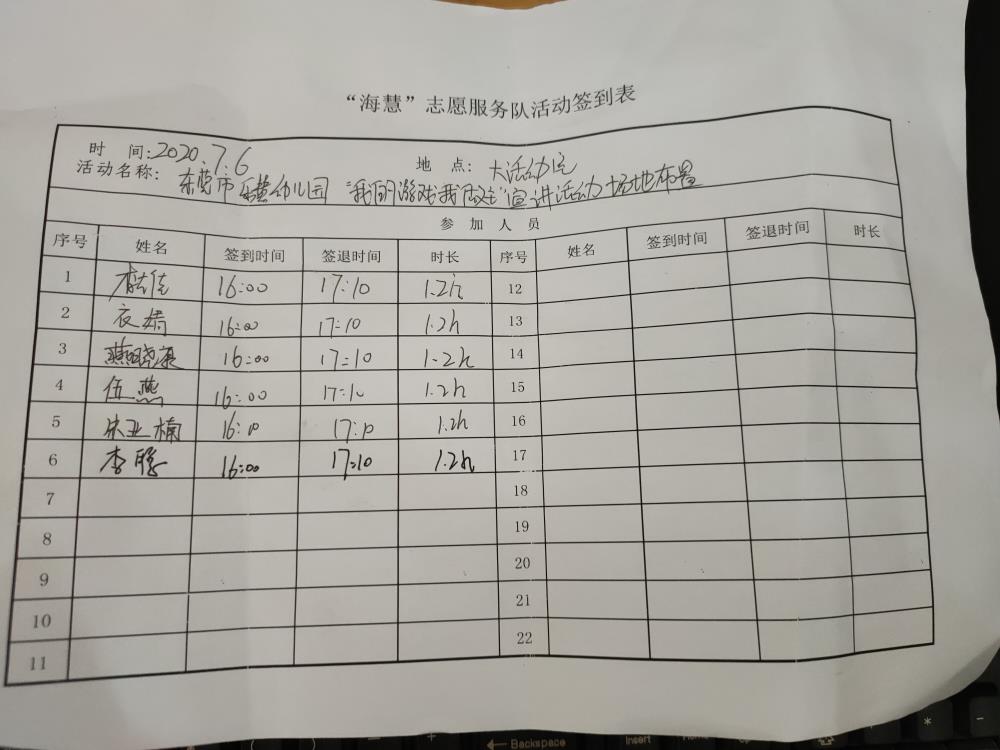 “海慧”志愿服务队活动签到表
时 间:2020.7.6 地 点: 大活动室
活动名称: 东莞市 幼儿园 “我的游戏我做主”宣讲活动场地布置
参 加 人 员
序号 姓名 签到时间 签退时间 时长 序号 姓名 签到时间 签退时间 时长
1 16:00 17:10 1.2h 12
2 衣婧 16:00 17:10 1.2h 13
3 燕晓康 16:00 17:10 1.2h 14
4 伍燕 16:00 17:10 1.2h 15
5 宋亚楠 16:00 17:10 1.2h 16
6 李 16:00 17:10 1.2h 17
7 18
8 19
9 20
10 21
11 22
Backspace
Insert
*
-
+